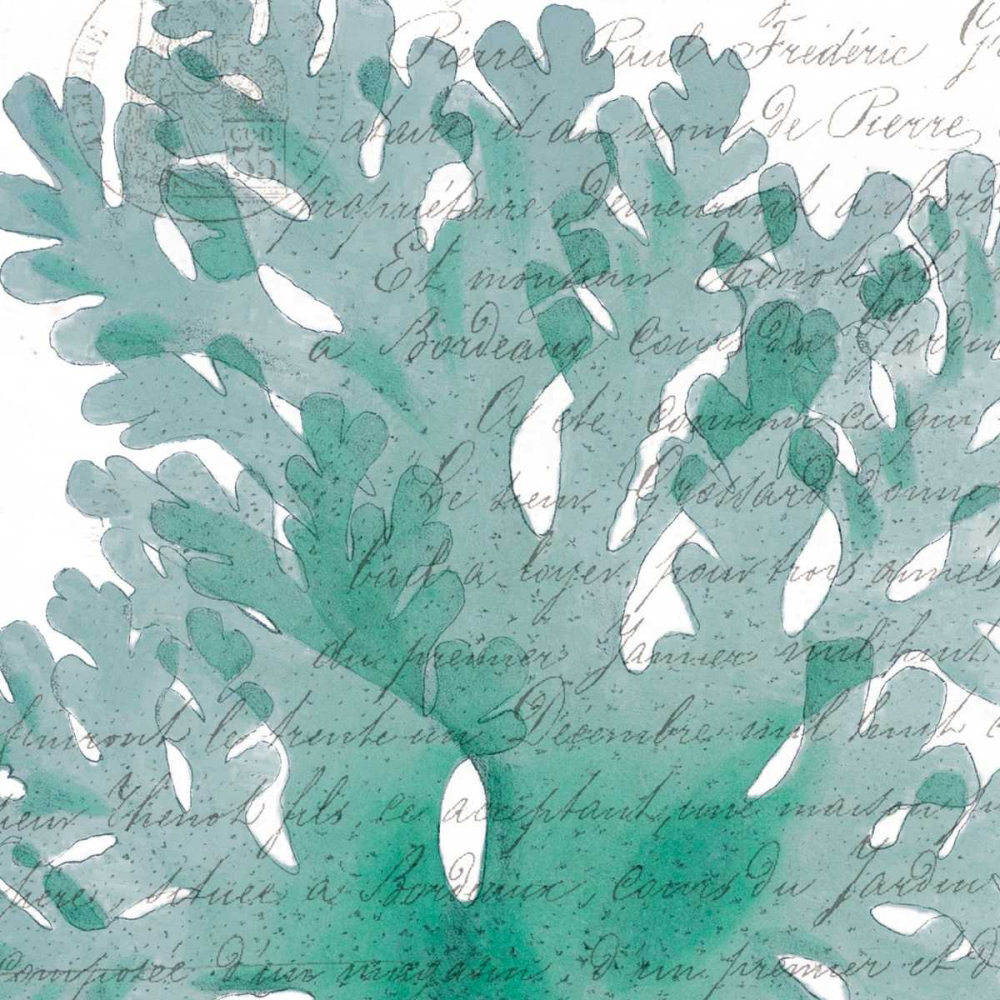 Pierre Paul Frédéric
et au nom de Pierre
propriétaire, demeurant à Bord
Et monsieur Thenot fils
a Bordeaux cours du Jardin
A été convenu ce qui
Le sieur Grossard donne
bail a loyer, pour trois année
du premier Janvier mil huit
finiront le trente-un Décembre mil huit c
ieur Thenot fils ce acceptant, une maison
située à Bordeaux, cours du Jardin
Composée d'un magasin d'un premier et d